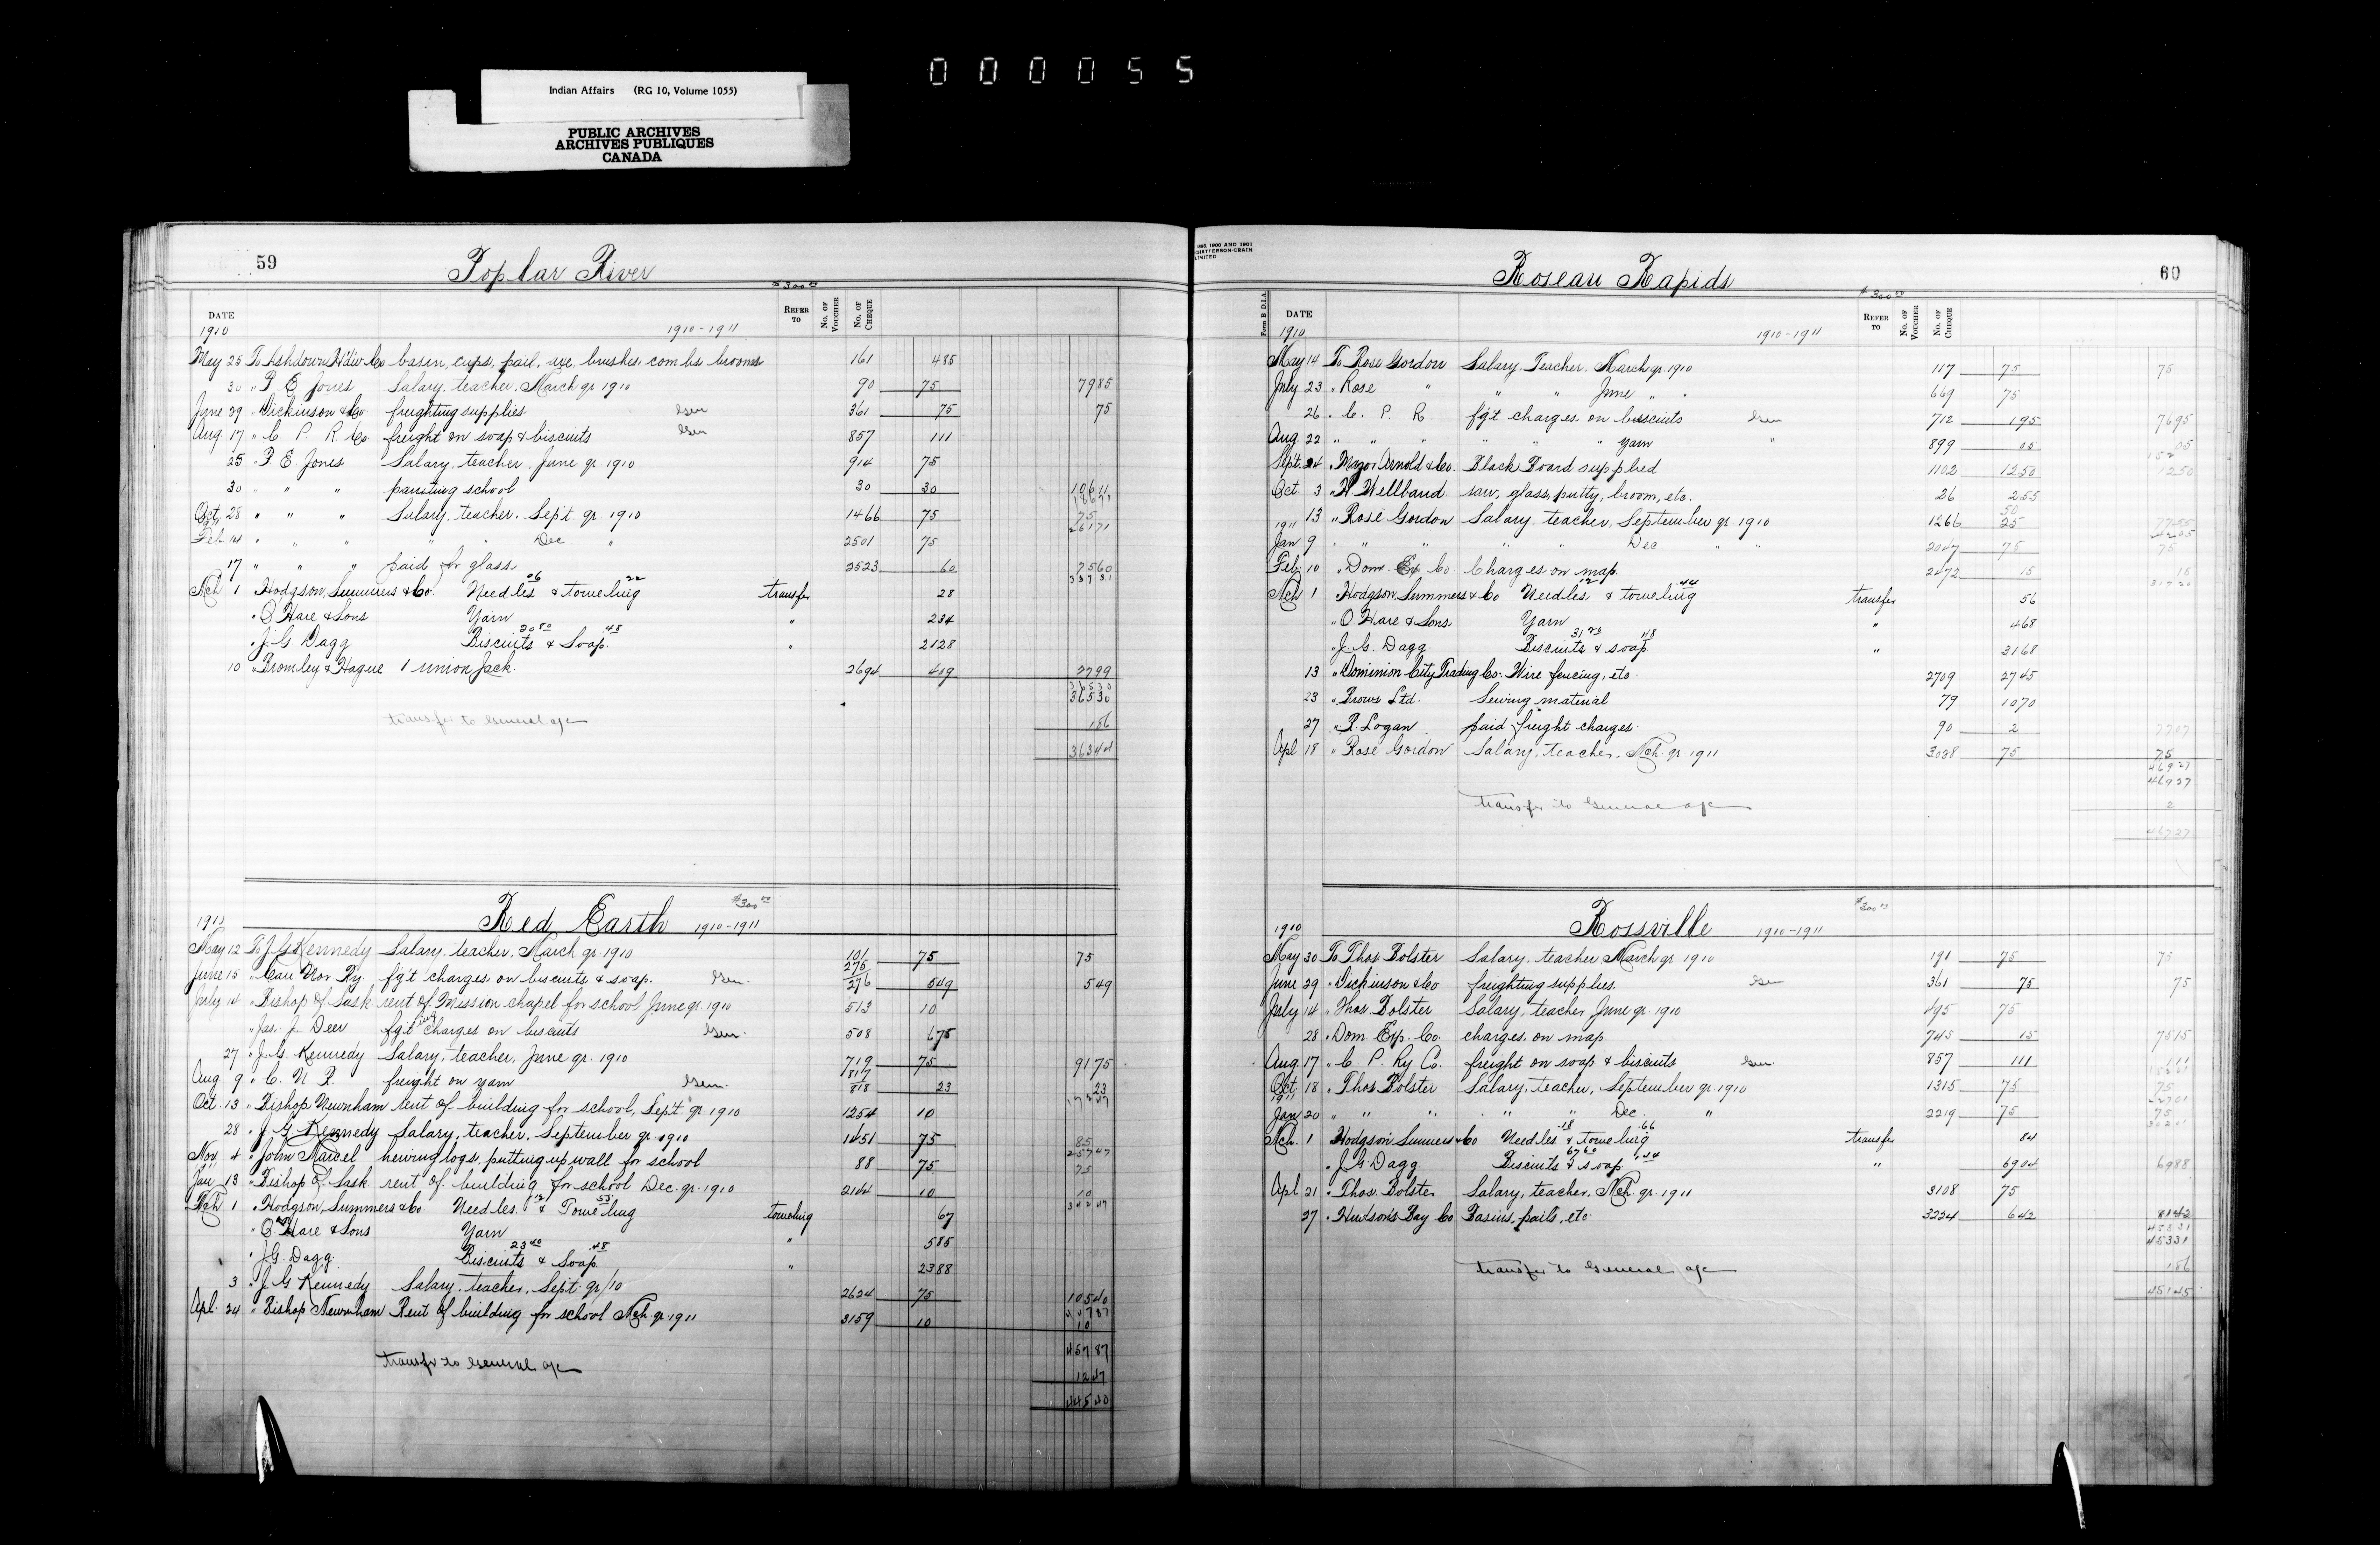 000055
Indian Affairs (RG 10, Volume 1055)
PUBLIC ARCHIVES
ARCHIVES PUBLIQUES
CANADA
59 Poplar River
$300.00
DATE REFER TO No. OF VOUCHER No. OF CHEQUE
1910 1910-1911
May 25 To Ashdown Hdw Co basin, cups, pail, axe, brushes, combs, brooms 161 485
30 " P E Jones Salary, teacher, March qr 1910 90 75 7985
June 29 " Dickinson & Co freighting supplies Gen 361 75 75
Aug 17 " C. P. R. Co. freight on soap & biscuits Gen 857 111
25 " P E Jones Salary, teacher, June qr 1910 914 75
30 " " " painting school 30 30 10611
Oct 28 " " " Salary, teacher, Sept. qr. 1910 1466 75 75
26171
Feb 14 " " " " " Dec " 2501 75
17 " " " paid for glass 2523 60 7560
33731
Mch 1 Hodgson, Summers & Co. Needles 06 & toweling 22 transfer 28
" O'Hare & Sons Yarn " 234
" J. G. Dagg Biscuits 2080 & Soap 48 " 2128
10 " Bromley & Hague 1 Union Jack 2694 419 2799
36530
36530
transfer to General a/c 186
36344
Red Earth 1910-1911 $300.00
1910
May 12 To J G Kennedy Salary, teacher, March qr 1910 101 75 75
June 15 " Can. Nor. Ry. fg't charges on biscuits & soap. Gen. 275 276 549 549
July 14 " Bishop of Sask rent of Mission chapel for school June qr. 1910 513 10
" Jas. J. Deer fgt'ing charges on biscuits Gen. 508 675
27 " J. G. Kennedy Salary, teacher, June qr. 1910 719 75 9175
Aug 9 " C. N. R. freight on yarn Gen. 817 818 23 23
17247
Oct. 13 " Bishop Newnham rent of building for school, Sept. qr. 1910 1254 10
28 " J. G. Kennedy Salary, teacher, September qr. 1910 1451 75 85
25747
Nov 4 " John Marcel hewing logs, putting up wall for school 88 75 75
Jan 13 " Bishop of Sask rent of building for school Dec. qr. 1910 2144 10 10
34247
Mch 1 " Hodgson, Summers & Co. Needles 12 & Toweling 55 toweling 67
" O'Hare & Sons Yarn " 585
" J. G. Dagg Biscuits 2340 & Soap 48 " 2388
3 " J G Kennedy Salary, teacher, Sept. qr/10 2624 75 10540
44787
Apl. 24 " Bishop Newnham Rent of building for school Mch. qr. 1911 3159 10 10
45787
transfer to General a/c 1247
44540
1899, 1900 AND 1901
CHATTERSON-CRAIN
LIMITED
Roseau Rapids 60
$300.00
Form B D.I.A. DATE REFER TO No. OF VOUCHER No. OF CHEQUE
1910 1910-1911
May 14 To Rose Gordon Salary, Teacher, March qr. 1910 117 75 75
July 23 " Rose " " " June " " 669 75
26 " C. P. R. fg't charges on biscuits Gen 712 195 7695
Aug. 22 " " " " " " yarn " 899 05 05
Sept. 24 " Mazor Arnold & Co. Black Board supplied 1102 1250 1250
Oct. 3 " H Wellband saw, glass, putty, broom, etc. 26 255
13 " Rose Gordon Salary, teacher, September qr. 1910 1266 50 25 7755
1911
Jan 9 " " " " " Dec. " " 2047 75 75
Feb 10 " Dom. Ex Co Charges on map 2472 15 15
Mch 1 Hodgson, Summers & Co Needles 12 & toweling 44 transfer 56
" O'Hare & Sons Yarn " 468
" J. G. Dagg. Biscuits 3120 & soap 48 " 3168
13 " Dominion City Trading Co. Wire fencing, etc. 2709 2745
23 " Brows Ltd. Sewing material 79 1070
27 " R. Logan paid freight charges 90 2 7707
Apl 18 " Rose Gordon Salary, teacher, Mch qr. 1911 3038 75 75
46927
46927
transfer to General a/c 2
46727
Rossville 1910-1911 $300.00
1910
May 30 To Thos Bolster Salary, teacher, March qr 1910 191 75 75
June 29 " Dickinson & Co freighting supplies Gen 361 75 75
July 14 " Thos. Bolster Salary, teacher, June qr. 1910 495 75
28 " Dom. Exp. Co. charges on map 745 15 7515
Aug. 17 " C. P. Ry. Co. freight on soap & biscuits Gen. 857 111 111
Oct. 18 " Thos Bolster Salary, teacher, September qr. 1910 1315 75 75
1911
Jan 20 " " " " " Dec. " 2219 75 75
Mch. 1 Hodgson Summers & Co Needles 18 & toweling 66 transfer 84
" J. G. Dagg. Biscuits 6760 & soap 144 " 6904 6988
Apl 21 " Thos. Bolster Salary, teacher, Mch. qr. 1911 3108 75
27 " Hudson's Bay Co Basins, pails, etc. 3224 642 8142
45331
45331
transfer to General a/c 186
45145